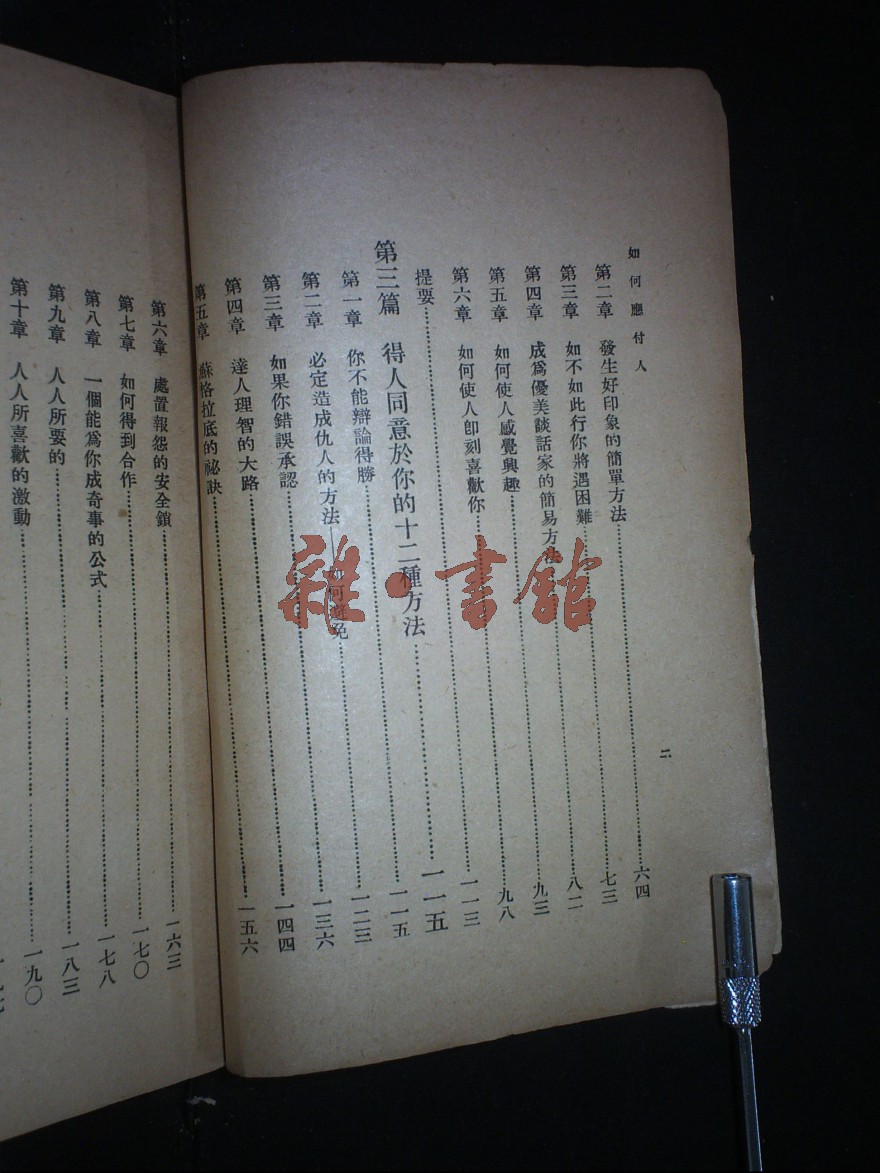 如何應付人
二
第二章 發生好印象的簡單方法……六四
第三章 如不如此行你將遇困難……七三
第四章 成爲優美談話家的簡易方法……八二
第五章 如何使人感覺興趣……九三
第六章 如何使人卽刻喜歡你……九八
提要……一一三
第三篇 得人同意於你的十二種方法……一一五
第一章 你不能辯論得勝……一一五
第二章 必定造成仇人的方法——如何避免……一二三
第三章 如果你錯誤承認……一三六
第四章 達人理智的大路……一四四
第五章 蘇格拉底的祕訣……一五六
第六章 處置報怨的安全鎖……一六三
第七章 如何得到合作……一七〇
第八章 一個能爲你成奇事的公式……一七八
第九章 人人所要的……一八三
第十章 人人所喜歡的激動……一九〇
雜·書館